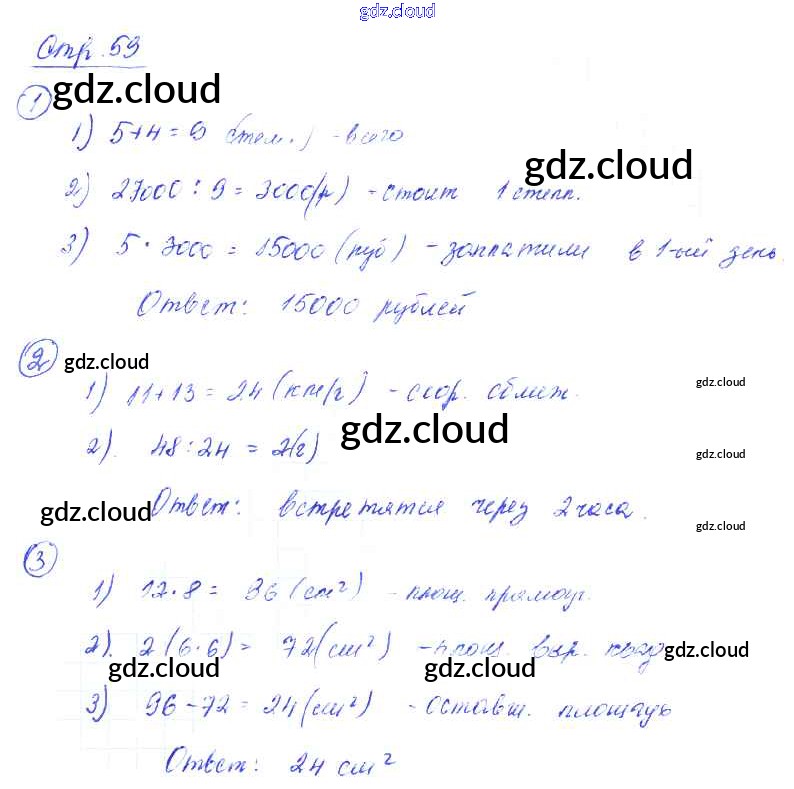 gdz.cloud
Стр. 59
gdz.cloud
1
1) 5+4=9 (тел.) -всего
gdz.cloud
2) 27000 : 9 = 3000(р) -стоит 1 стелл.
3) 5 · 3000 = 15000 (руб) - заплатили в 1-ый день
Ответ: 15000 рублей
2 gdz.cloud
1) 11+13 = 24 (км/ч) - скор. сближ.
gdz.cloud
gdz.cloud
2). 48:24 = 2(ч)
gdz.cloud
Ответ: встретятся через 2 часа.
gdz.cloud
gdz.cloud
3
1) 12·8 = 96 (см²) - площ. прямоуг.
2). 2(6·6) = 72(см²) - площ. выр. квад
gdz.cloud
gdz.cloud
gdz.cloud
3) 96-72 = 24(см²) - оставш. площадь
Ответ: 24 см²